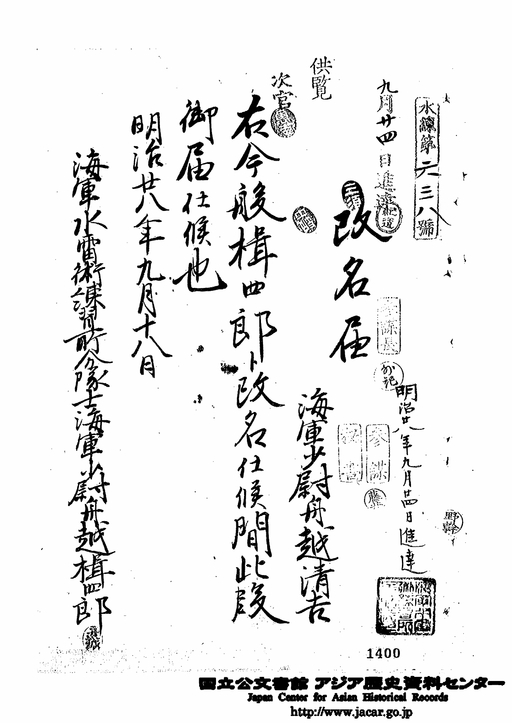 水練第六三八號
九月廿四日進達
供覧
次官
明治廿八年九月廿四日進達
改名届
海軍少尉舟越清吉
右今般楫四郎ト改名仕候間此段
御届仕候也
明治廿八年九月十八日
海軍水雷術練習所分隊士海軍少尉舟越楫四郎
1400
国立公文書館 アジア歴史資料センター
Japan Center for Asian Historical Records
http://www.jacar.go.jp